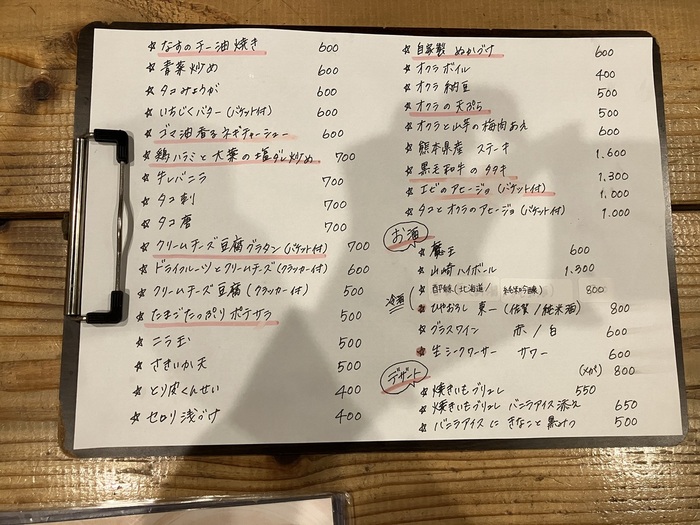 ☆ なすのチー油焼き 600
☆ 青菜炒め 600
☆ タコみょうが 600
☆ いちじくバター(バケット付) 600
☆ ゴマ油香るネギチャーシュー 600
☆ 鶏ハラミと大葉の塩ダレ炒め 700
☆ 牛レバニラ 700
☆ タコ刺 700
☆ タコ唐 700
☆ クリームチーズ豆腐グラタン(バケット付) 700
☆ ドライフルーツとクリームチーズ(クラッカー付) 600
☆ クリームチーズ豆腐(クラッカー付) 500
☆ たまごたっぷりポテサラ 500
☆ ニラ玉 500
☆ さきいか天 500
☆ とり皮くんせい 400
☆ セロリ浅づけ 400
☆ 自家製 ぬかづけ 600
☆ オクラボイル 400
☆ オクラ納豆 500
☆ オクラの天ぷら 500
☆ オクラと山芋の梅肉あえ 600
☆ 熊本県産 ステーキ 1.600
☆ 黒毛和牛のタタキ 1.300
☆ エビのアヒージョ(バケット付) 1.000
☆ タコとオクラのアヒージョ(バケット付) 1.000
お酒
☆ 魔王 600
☆ 山崎ハイボール 1.300
冷酒
☆ (北海道/純米吟醸) 800
☆ ひやおろし 東一 (佐賀/純米酒) 800
☆ グラスワイン 赤/白 600
☆ 生シークワーサー サワー 600
(メガ) 800
デザート
☆ 焼きいもブリュレ 550
☆ 焼きいもブリュレ バニラアイス添え 650
☆ バニラアイスに きなこと黒みつ 500